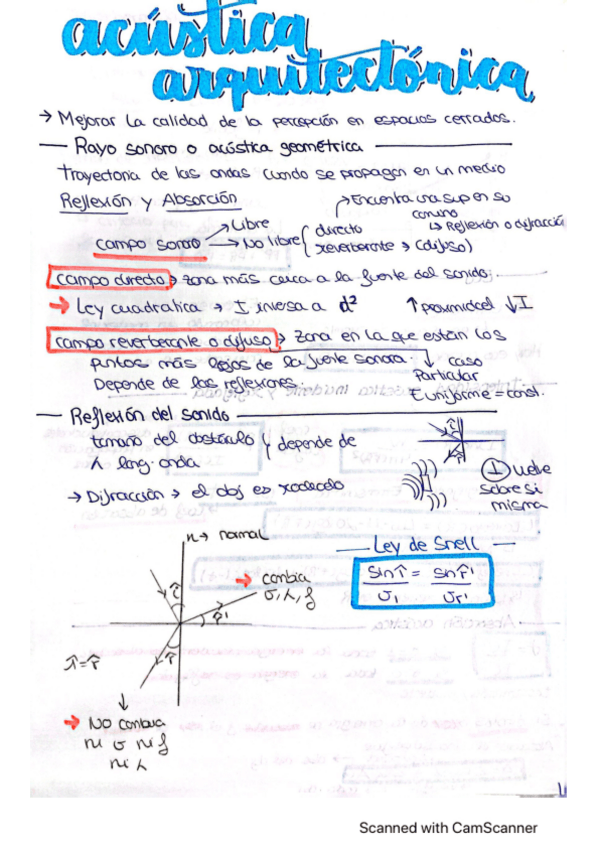 acústica
arquitectónica
→ Mejorar la calidad de la percepción en espacios cerrados.
— Rayo sonoro o acústica geométrica —
trayectoria de las ondas cuando se propagan en un medio
Reflexión y Absorción
→ Encuentra una sup en su camino
↳ Reflexión o difracción
campo sonoro → Libre
→ No libre { directo
reverberante → (difuso)
campo directo → zona más cerca a la fuente del sonido.
→ Ley cuadratica → I inversa a d² ↑ proximidad ↓ I
campo reverberante o difuso → Zona en la que están los
puntos más lejos de la fuente sonora. ↓ caso
Particular
Depende de las reflexiones. E uniforme = const.
— Reflexión del sonido —
tamaño del obstáculo y depende de
λ long. onda
→ Difracción → el obj es rodeado
⊥ vuelve
sobre si
misma
n → normal
— Ley de Snell —
sin î / v₁ = sin r̂' / vr'
→ cambia
v, λ, f
î
r̂'
r̂
î = r̂
→ No cambia
ni v ni f
ni λ
Scanned with CamScanner